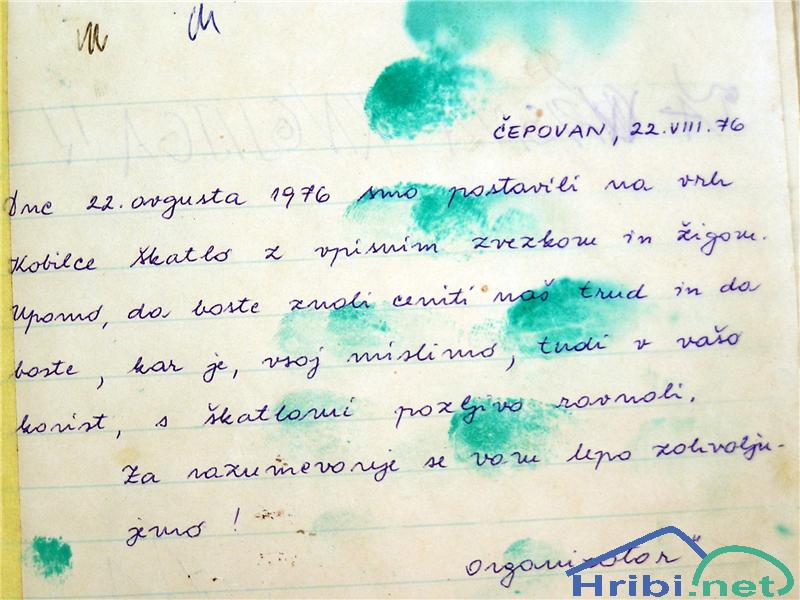 ČEPOVAN, 22.VIII.76
Dne 22. avgusta 1976 smo postavili na vrh
Kobilce škatlo z vpisnim zvezkom in žigom.
Upamo, da boste znali ceniti naš trud in da
boste, kar je, vsaj mislimo, tudi v vašo
korist, s škatlami pazljivo ravnali.
Za razumevanje se vam lepo zahvalju-
jemo!
Organizator"
Hribi.net